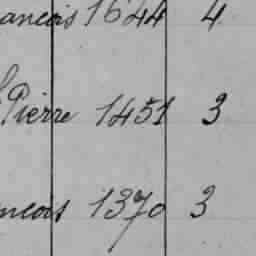 ancois 1644 4
Pierre 1451 3
ncois 1370 3